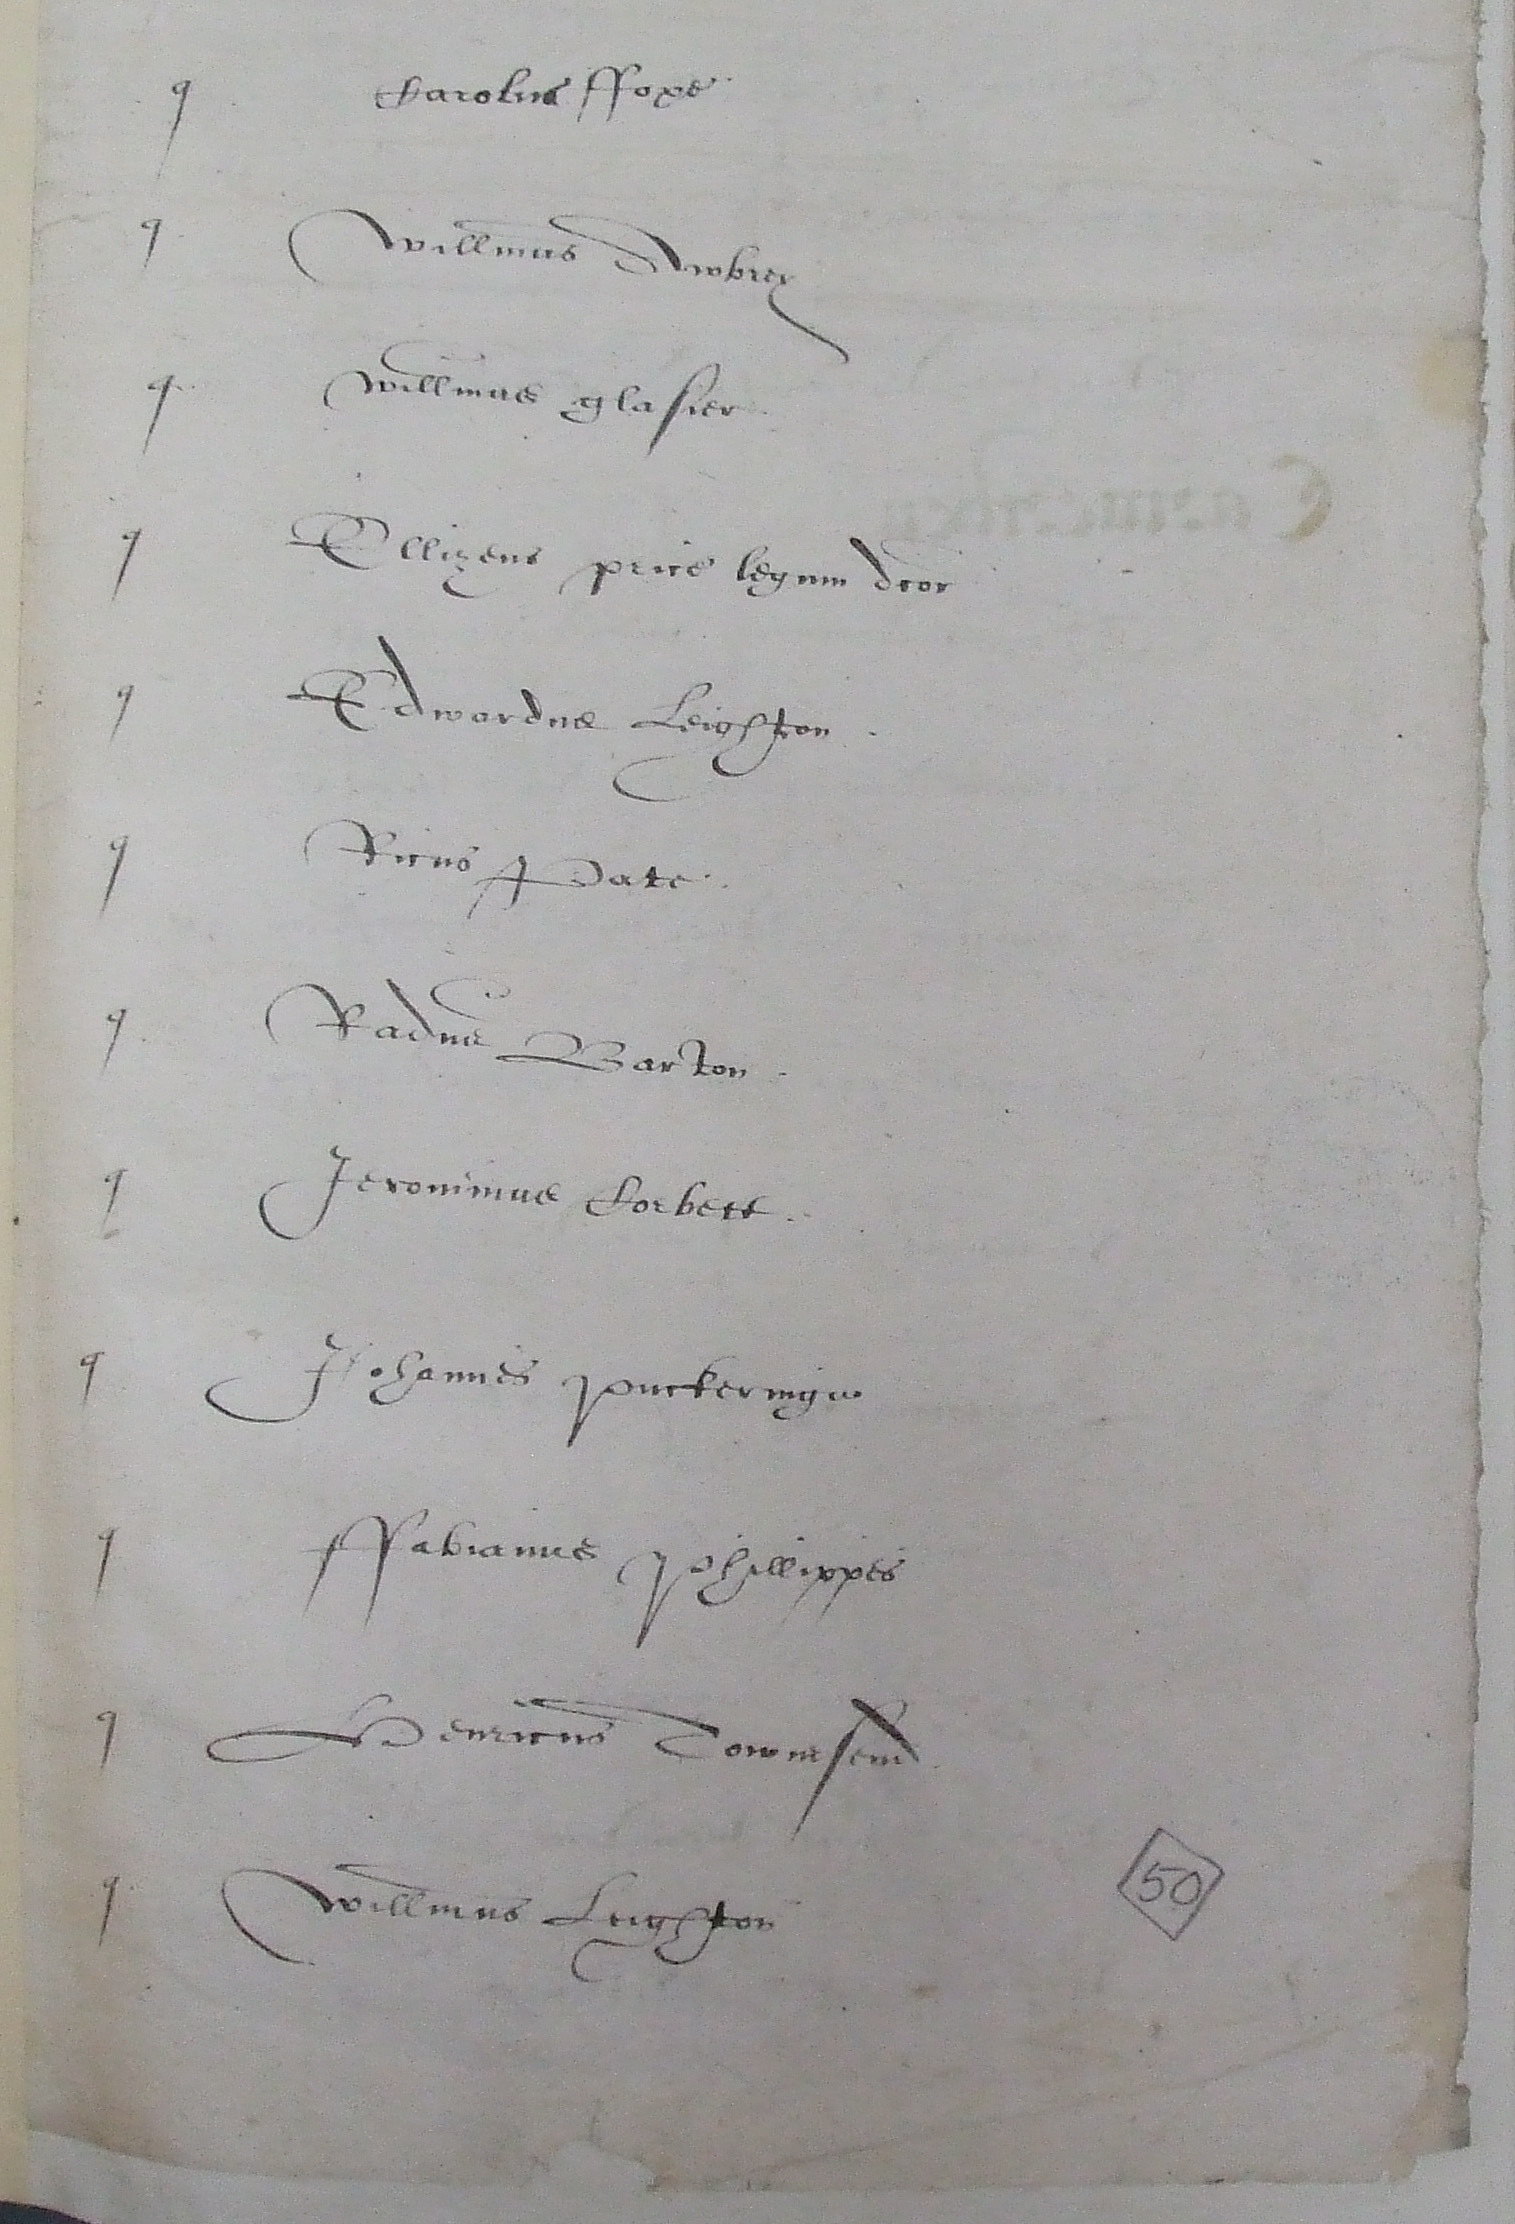 q Carolus ffoxe
q Willmus Awbrey
q Willmus glasier
q Ellizeus price legum dcor
q Edwardus Leighton
q Ricus Pate
q Radus Barton
q Jeronimus Corbett
q Johannes Puckeringe
q ffabianus Phillippes
q Henricus Townesend
q Willmus Leighton
50